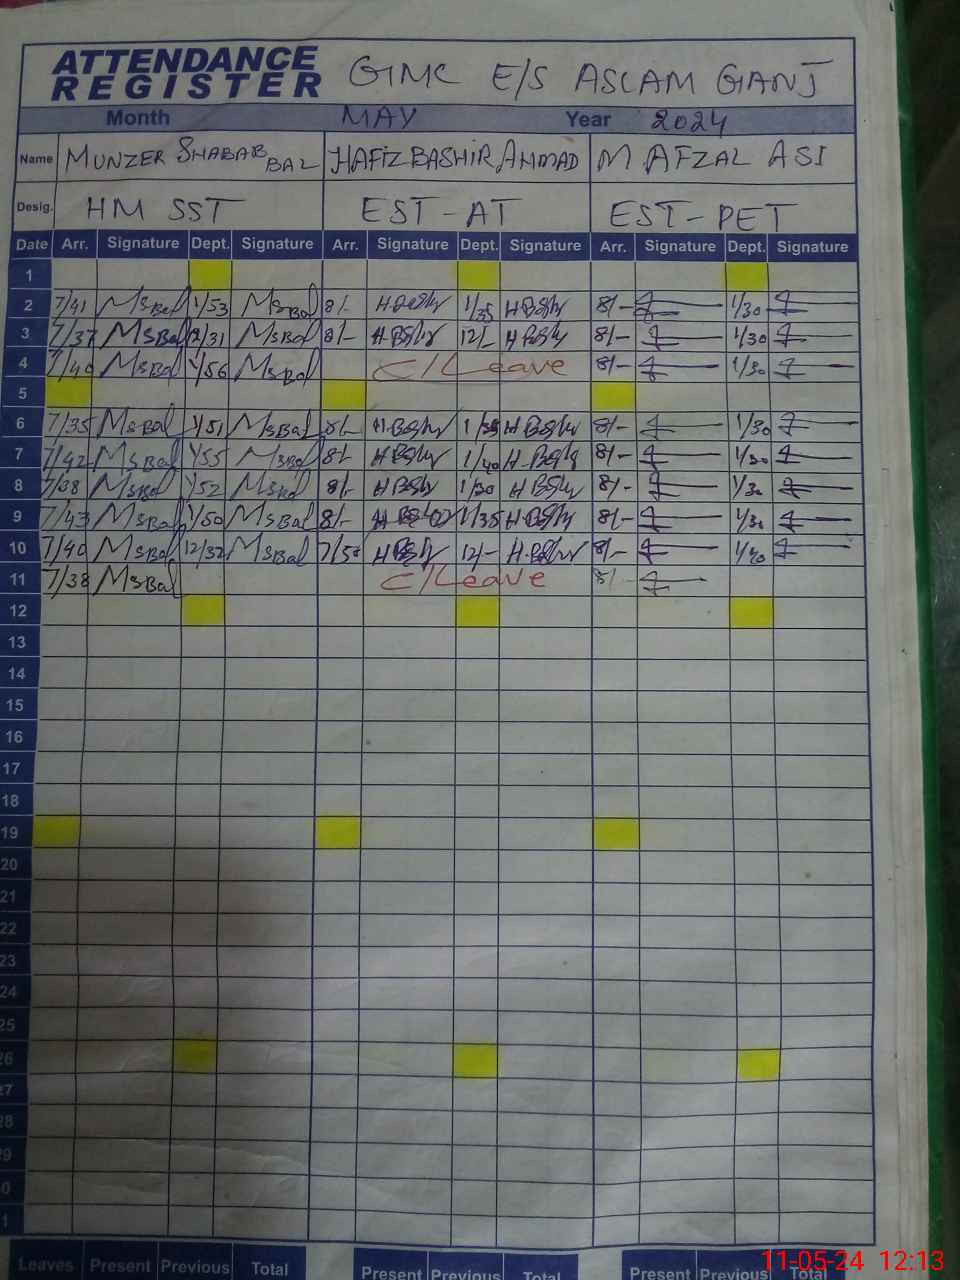 ATTENDANCE REGISTER GMC E/S ASLAM GANJ
Month MAY Year 2024
Name MUNZER SHABAB BAL HAFIZ BASHIR AHMAD M AFZAL ASI
Desig. HM SST EST-AT EST-PET
Date Arr. Signature Dept. Signature Arr. Signature Dept. Signature Arr. Signature Dept. Signature
1
2 7/41 MSBal 1/53 MSBal 8/- 1/35 8/- 1/30
3 7/37 MSBal 12/31 MSBal 8/- 12/- 8/- 1/30
4 7/40 MSBal 1/56 MSBal C/Leave 8/- 1/30
5
6 7/35 MSBal 1/51 MSBal 8/- 1/35 8/- 1/30
7 7/42 MSBal 1/55 MSBal 8/- 1/40 8/- 1/30
8 7/38 MSBal 1/52 MSBal 8/- 1/30 8/- 1/30
9 7/43 MSBal 1/50 MSBal 8/- 1/35 8/- 1/30
10 7/40 MSBal 12/32 MSBal 7/58 12/- 8/-
11 7/38 MSBal C/Leave 8/-
12
13
14
15
16
17
18
19
20
21
22
23
24
25
26
27
28
29
Leaves Present Previous Total Present Previous Total Present Previous Total
11-05-24 12:13